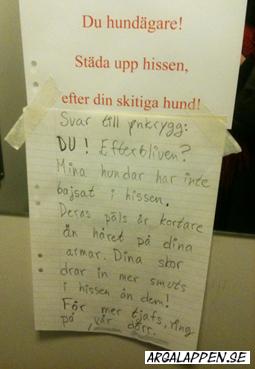 Du hundägare!
Städa upp hissen,
efter din skitiga hund!
Svar till ynkrygg:
DU! Efterbliven?
Mina hundar har inte
bajsat i hissen.
Deras päls är kortare
än håret på dina
armar. Dina skor
drar in mer smuts
i hissen än dem!
För mer tjafs, ring
på vår dörr.
ARGALAPPEN.SE